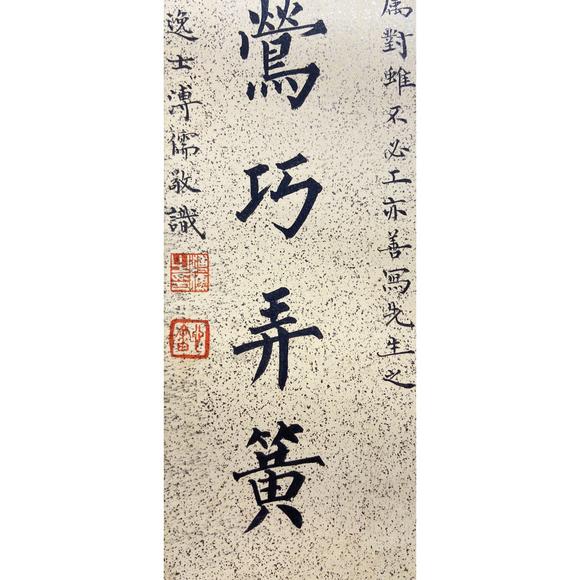 属對雖不必工亦善寫先生之
鶯巧弄簧
逸士溥儒敬識